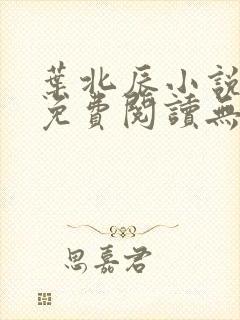 葉北辰小說
免費閱讀無
思嘉君